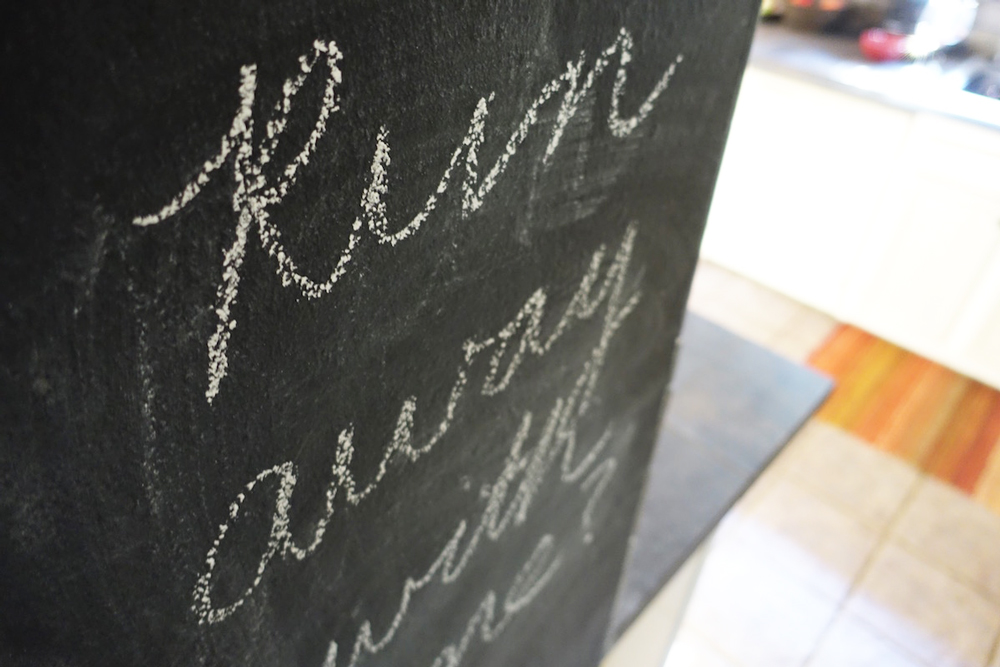 Run
away
with
me